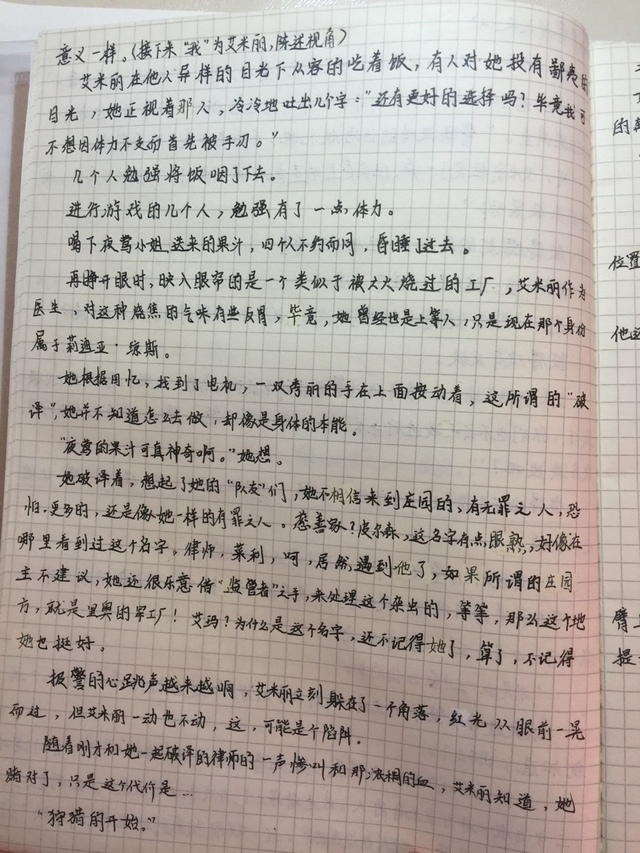 意义一样。(接下来“我”为艾米丽,陈述视角)
艾米丽在他人异样的目光下从容的吃着饭,有人对她投有鄙夷的
目光,她正视着那人,冷冷地吐出几个字:“还有更好的选择吗?毕竟我可
不想因体力不支而首先被手刃。”
几个人勉强将饭咽了下去。
进行游戏的几个人,勉强有了一点体力。
喝下夜莺小姐送来的果汁,四个人不约而同,昏睡了过去。
再睁开眼时,映入眼帘的是一个类似于被大火烧过的工厂,艾米丽作为
医生、对这种烧焦的气味有些反胃,毕竟,她曾经也是上等人,只是现在那个身份
属于莉迪亚·琼斯。
她根据回忆,找到了电机,一双秀丽的手在上面按动着,这所谓的“破
译”,她并不知道怎么去做,却像是身体的本能。
“夜莺的果汁可真神奇啊。”她想。
她破译着,想起了她的“队友”们,她不相信来到庄园的、有无罪之人,恐
怕.更多的,还是像她一样的有罪之人。慈善家?皮尔森,这名字有点眼熟,好像在
哪里看到过这个名字。律师,莱利,呵,居然遇到他了,如果所谓的庄园
主不建议,她还很乐意借“监管者”之手,来处理这个杂出的,等等,那么这个地
方,就是里奥的军工厂!艾玛?为什么是这个名字,还不记得她了,算了,不记得
她也挺好。
报警的心跳声越来越响,艾米丽立刻躲在了一个角落,红光从眼前一晃
而过,但艾米丽一动也不动,这,可能是个陷阱.
随着刚才和她一起破译的律师的一声惨叫和那浓稠的血,艾米丽知道,她
赌对了,只是这个代价是…
“狩猎的开始。”
的
位置
他还
臂上
提